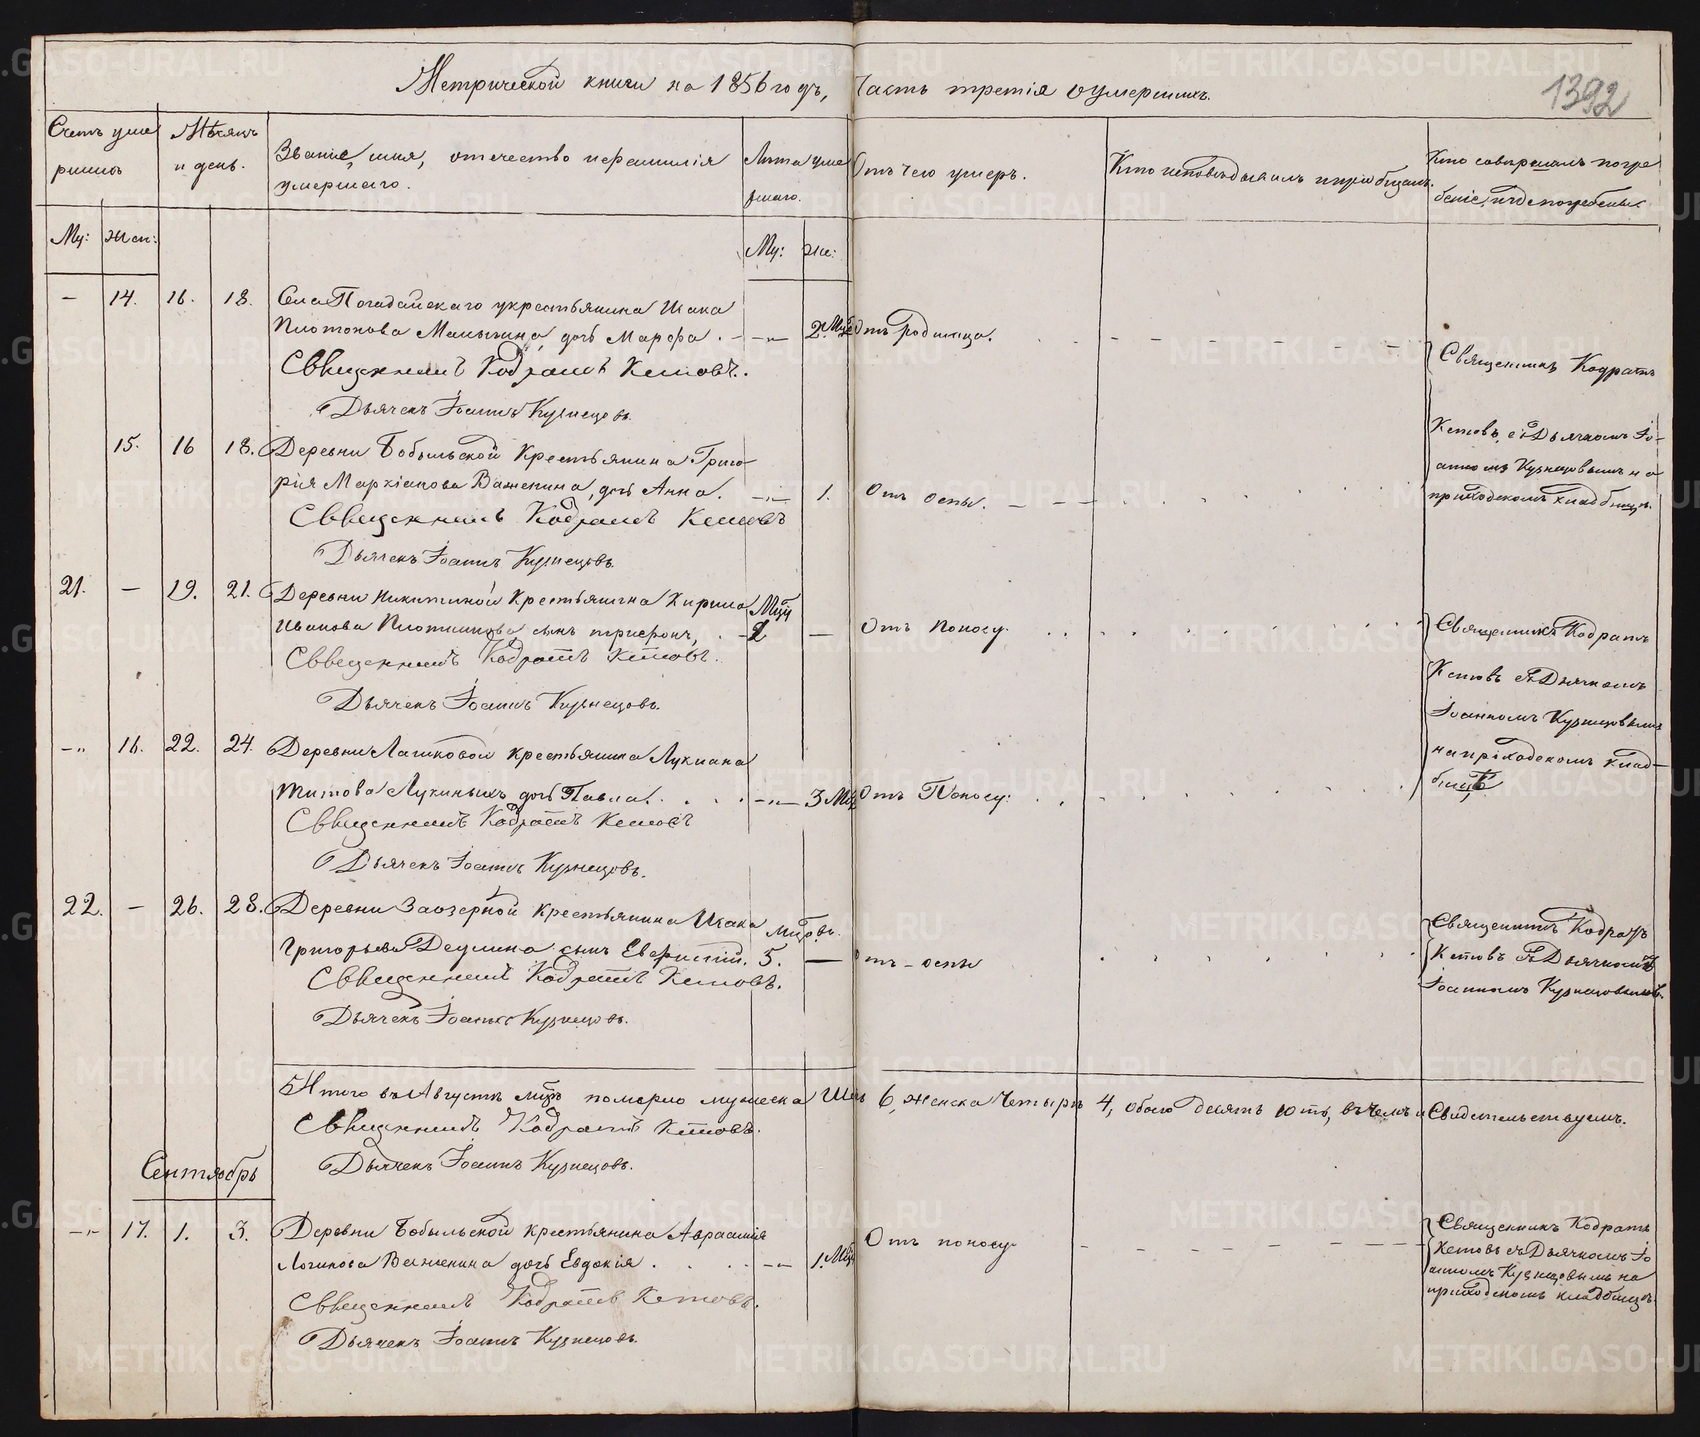 Метрической книги на 1856 годъ, Часть третія оумершихъ.
1392
Счетъ уме
ршихъ
Мѣсяцъ
и день.
Званіе, имя, отечество ифамилія
умершаго.
Лѣта уме
ршаго.
Отъ чего умеръ.
Кто исповѣдывалъ ипріобщалъ.
Кто совершалъ погре
беніе, игдѣ погребены
Му: Жен:
Му: Же:
— 14. 16. 18. Села крестьянина Исака
Платонова дочь Марфа. 2. Мѣс Отъ родимца.
Священникъ Кодратъ Кетовъ.
Дьячекъ Іоаннъ Кузнецовъ.
Священникъ Кодратъ
Кетовъ, съ Дьячкомъ Іо-
анномъ Кузнецовымъ на
приходскомъ кладбищѣ.
15. 16 18. Деревни Бобыльской Крестьянина Григо-
рия Маркіанова Важенина, дочь Анна. 1. Отъ оспы.
Священникъ Кодратъ Кетовъ
Дьячекъ Іоаннъ Кузнецовъ.
21. — 19. 21. Деревни Никитиной Крестьянина Кирила Мѣц
Иванова Плотникова сынъ Трифонъ, 2 — Отъ Поносу
Священникъ Кодратъ Кетовъ.
Дьячекъ Іоаннъ Кузнецовъ.
Священникъ Кодратъ
Кетовъ съ Дьячкомъ
Іоанномъ Кузнецовымъ
на приходскомъ клад-
бищѣ
16. 22. 24. Деревни крестьянина Лукиана
Титова Лукиныхъ дочь Павла. 3 Мѣс Отъ Поносу.
Священникъ Кодратъ Кетовъ
Дьячекъ Іоаннъ Кузнецовъ.
22. — 26. 28. Деревни Заозерной крестьянина Исака Мѣсцовъ.
Григорьева Деулина сынъ Еверистій. 5. — Отъ-оспы
Священникъ Кодратъ Кетовъ.
Дьячекъ Іоаннъ Кузнецовъ.
Священникъ Кодратъ
Кетовъ съ Дьячкомъ
Іоанномъ Кузнецовымъ.
Итого въ Августѣ мцѣ померло мужеска Шесть 6, женска Четыре 4, обоего десять 10ть, въ чемъ и Свидѣтельствуемъ.
Священникъ Кодратъ Кетовъ.
Дьячекъ Іоаннъ Кузнецовъ.
Сентябрь
17. 1. 3. Деревни Бобыльской крестьянина Авраамія
Логинова Важенина дочь Евдокія. 1. Мѣц Отъ поносу
Священникъ Кодратъ Кетовъ.
Дьячекъ Іоаннъ Кузнецовъ.
Священникъ Кодратъ
Кетовъ съ Дьячкомъ Іо
анномъ Кузнецовымъ на
приходскомъ кладбищѣ.
METRIKI.GASO-URAL.RU